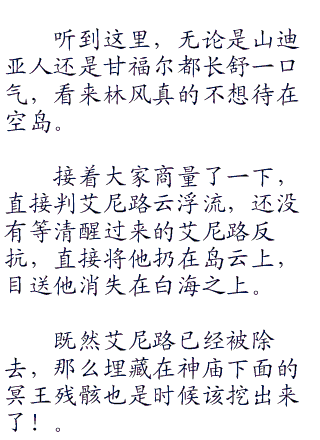 听到这里，无论是山迪
亚人还是甘福尔都长舒一口
气，看来林风真的不想待在
空岛。
接着大家商量了一下，
直接判艾尼路云浮流，还没
有等清醒过来的艾尼路反
抗，直接将他扔在岛云上，
目送他消失在白海之上。
既然艾尼路已经被除
去，那么埋藏在神庙下面的
冥王残骸也是时候该挖出来
了！。